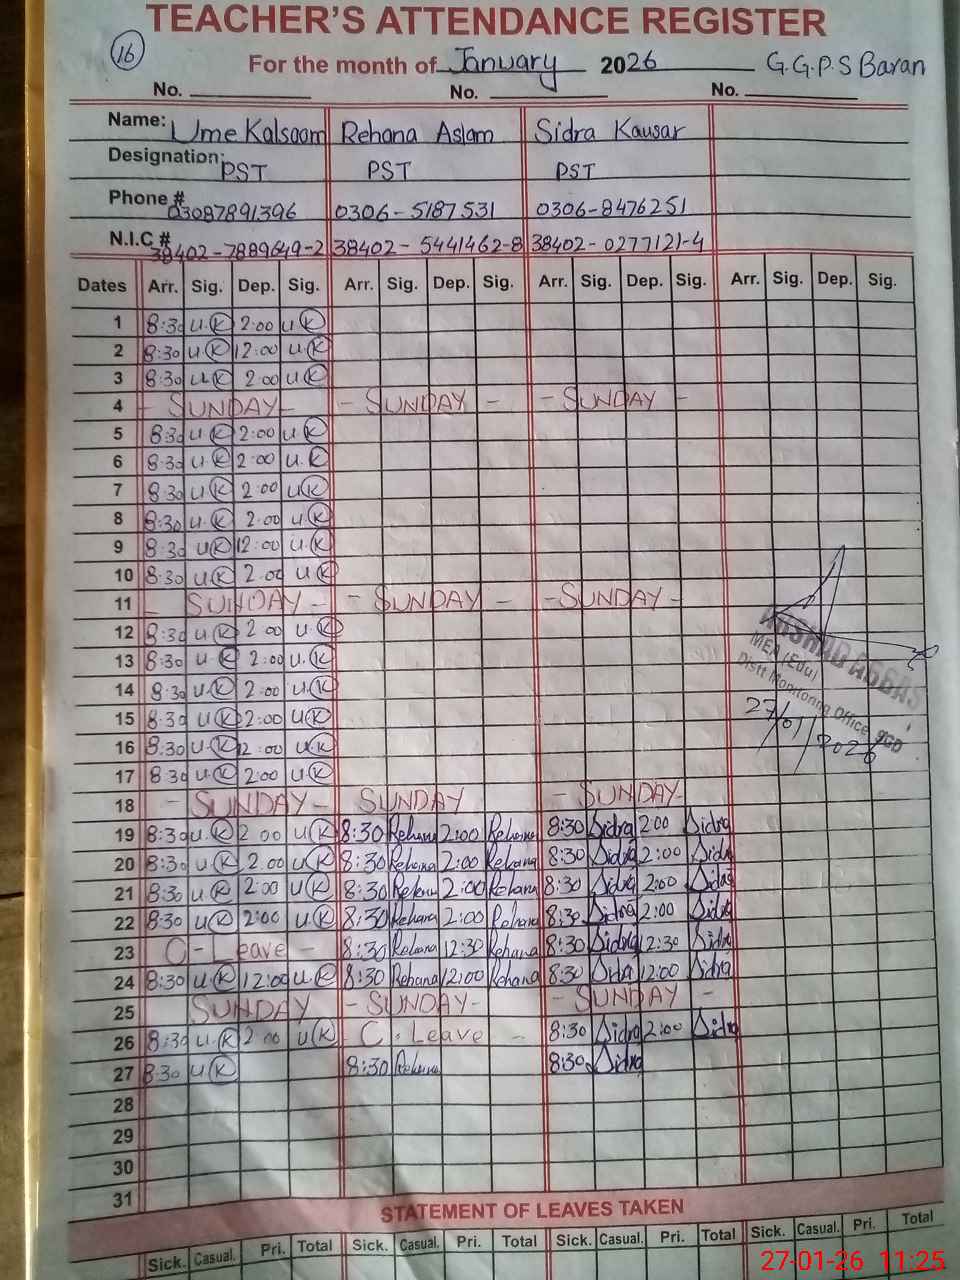 TEACHER'S ATTENDANCE REGISTER
16
For the month of January 2026 G.G.P.S Baran
No. No. No.
Name: Ume Kalsoom Rehana Aslam Sidra Kausar
Designation: PST PST PST
Phone # 03087891396 0306-5187531 0306-8476251
N.I.C # 38402-7889649-2 38402-5441462-8 38402-0277121-4
Dates Arr. Sig. Dep. Sig. Arr. Sig. Dep. Sig. Arr. Sig. Dep. Sig. Arr. Sig. Dep. Sig.
1 8:30 U.K 2:00 U.K
2 8:30 U.K 12:00 U.K
3 8:30 U.K 2:00 U.K
4 - SUNDAY - - SUNDAY - - SUNDAY -
5 8:30 U.K 2:00 U.K
6 8:30 U.K 2:00 U.K
7 8:30 U.K 2:00 U.K
8 8:30 U.K 2:00 U.K
9 8:30 U.K 12:00 U.K
10 8:30 U.K 2:00 U.K
11 - SUNDAY - - SUNDAY - - SUNDAY -
12 8:30 U.K 2:00 U.K
13 8:30 U.K 2:00 U.K
14 8:30 U.K 2:00 U.K
15 8:30 U.K 2:00 U.K
16 8:30 U.K 12:00 U.K
17 8:30 U.K 2:00 U.K
18 - SUNDAY - SUNDAY - SUNDAY -
19 8:30 U.K 2:00 U.K 8:30 Rehana 2:00 Rehana 8:30 Sidra 2:00 Sidra
20 8:30 U.K 2:00 U.K 8:30 Rehana 2:00 Rehana 8:30 Sidra 2:00 Sidra
21 8:30 U.K 2:00 U.K 8:30 Rehana 2:00 Rehana 8:30 Sidra 2:00 Sidra
22 8:30 U.K 2:00 U.K 8:30 Rehana 2:00 Rehana 8:30 Sidra 2:00 Sidra
23 C - Leave - 8:30 Rehana 12:30 Rehana 8:30 Sidra 12:30 Sidra
24 8:30 U.K 12:00 U.K 8:30 Rehana 12:00 Rehana 8:30 Sidra 12:00 Sidra
25 SUNDAY - SUNDAY - - SUNDAY -
26 8:30 U.K 2:00 U.K - C. Leave - 8:30 Sidra 2:00 Sidra
27 8:30 U.K 8:30 Rehana 8:30 Sidra
28
29
30
31
ABBAS
MEA (Edu)
Distt Monitoring Office SGD
27/01/2026
STATEMENT OF LEAVES TAKEN
Sick. Casual. Pri. Total Sick. Casual. Pri. Total Sick. Casual. Pri. Total Sick. Casual. Pri. Total
27-01-26 11:25